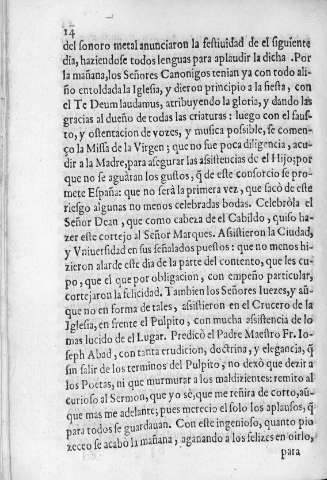 14
del sonoro metal anunciaron la festiuidad de el siguiente
dia, haziendose todos lenguas para aplaudir la dicha. Por
la mañana, los Señores Canonigos tenian ya con todo ali-
ño entoldada la Iglesia, y dieron principio a la fiesta, con
el Te Deum laudamus, atribuyendo la gloria, y dando las
gracias al dueño de todas las criaturas: luego con el faus-
to, y ostentacion de vozes, y musica possible, se comen-
ço la Missa de la Virgen; que no fue poca diligencia, acu-
dir a la Madre, para asegurar las asistencias de el Hijo; por
que no se aguàran los gustos, q̃ de este consorcio se pro-
mete España: que no serà la primera vez, que sacò de este
riesgo algunas no menos celebradas bodas. Celebròla el
Señor Dean, que como cabeza de el Cabildo, quiso ha-
zer este cortejo al Señor Marques. Asistieron la Ciudad,
y Vniuersidad en sus señalados puestos: que no menos hi-
zieron alarde este dia de la parte del contento, que les cu-
po, que el que por obligacion, con empeño particular,
cortejaron la felicidad. Tambien los Señores Iuezes, y aũ-
que no en forma de tales, asistieron en el Crucero de la
Iglesia, en frente el Pulpito, con mucha asistencia de lo
mas lucido de el Lugar. Predicò el Padre Maestro Fr. Io-
seph Abad, con tanta erudicion, doctrina, y elegancia, q̃
sin salir de los terminos del Pulpito, no dexò que dezir a
los Poetas, ni que murmurar a los maldizientes: remito al
curioso al Sermon, que yo sè, que me reñira de corto, aũ-
que mas me adelante; pues merecio el solo los aplausos, q̃
para todos se guardauan. Con este ingenioso, quanto pio
zecco se acabò la mañana, aganando a los felizes en oirlo,
para